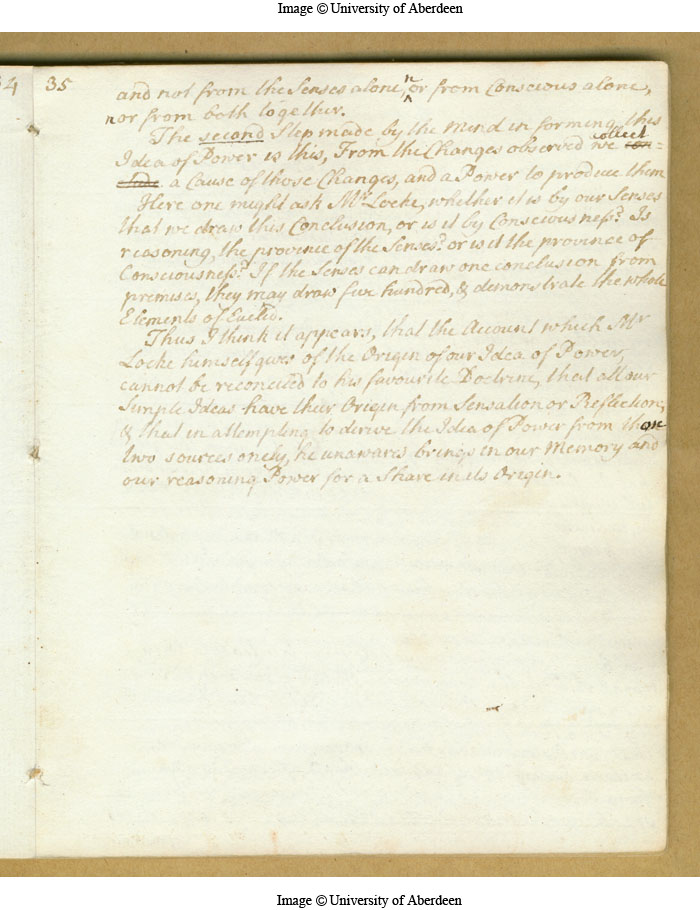 Image © University of Aberdeen
34 35
and not from the Senses alone, nor from Conscious alone,
nor from both together.
The second Step made by the Mind in forming this
Idea of Power is this, From the Changes observed we collect con=
clude a Cause of those Changes, and a Power to produce them
Here one might ask Mr Locke, whether it is by our Senses
that we draw this Conclusion, or is it by Consciousness? Is
reasoning, the province of the Senses? or is it the province of
Consciousness? If the Senses can draw one conclusion from
premises, they may draw five hundred, & demonstrate the whole
Elements of Euclid.
Thus I think it appears, that the Account which Mr
Locke himself gives of the Origin of our Idea of Power,
cannot be reconciled to his favourite Doctrine, that all our
Simple Ideas have their Origin from Sensation or Reflection;
& that in attempting to derive the Idea of Power from those
two sources onely, he unawares brings in our Memory and
our reasoning Power for a Share in its Origin.
Image © University of Aberdeen